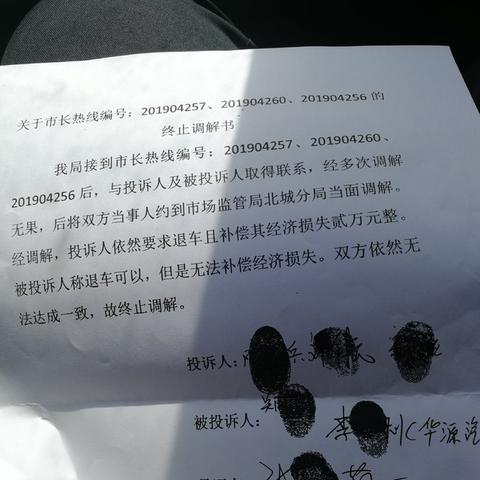 关于市长热线编号：201904257、201904260、201904256 的
终止调解书
我局接到市长热线编号：201904257、201904260、
201904256 后，与投诉人及被投诉人取得联系，经多次调解
无果，后将双方当事人约到市场监管局北城分局当面调解。
经调解，投诉人依然要求退车且补偿其经济损失贰万元整。
被投诉人称退车可以，但是无法补偿经济损失。双方依然无
法达成一致，故终止调解。
投诉人：
被投诉人： 李 利（华源汽